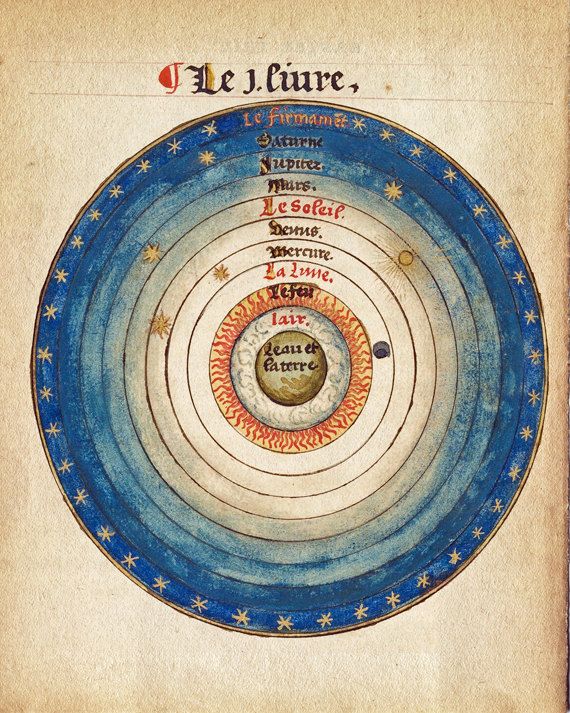 ¶ Le j. liure,
Le firmamēt
Saturne
Jupiter
Mars.
Le Soleil.
Venus.
Mercure.
La Lune.
Le feu
lair.
Leau et
laterre